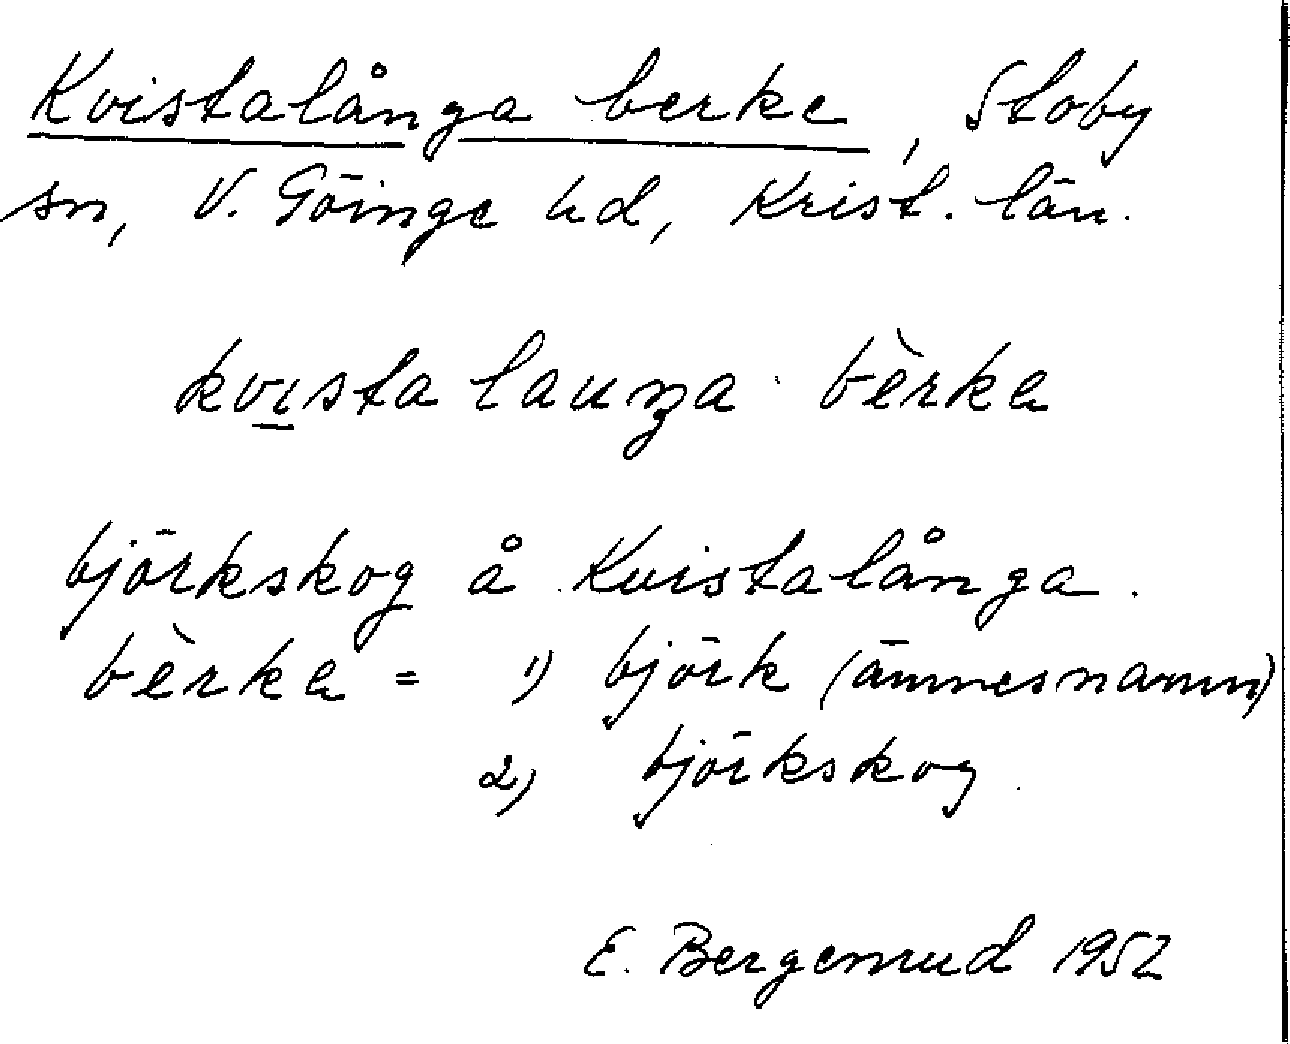 Kvistalånga berke, Stoby
sn, V. Göinge hd, Krist. län.
kvısta lauŋa bèrka
björkskog å Kvistalånga.
bèrka = 1) björk (ämnesnamn)
2) björkskog.
E. Bergenrud 1952